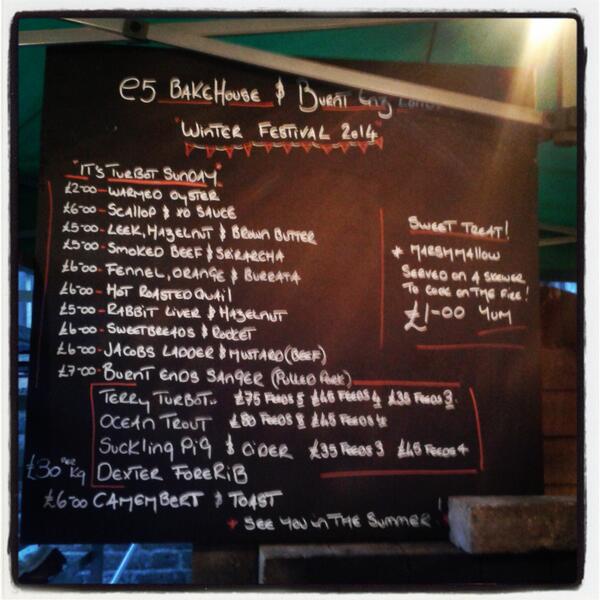 e5 BAKEHOUSE & BURNT Eng
"WINTER FESTIVAL 2014"
"IT'S TURBOT SUNDAY"
£2-00 - WARMED OYSTER
£6-00 - SCALLOP & XO SAUCE
£5-00 - LEEK, HAZELNUT & BROWN BUTTER
£5-00 - SMOKED BEEF & SRIRARCHA
£6-00 - FENNEL, ORANGE & BURRATA
£6-00 - HOT ROASTED QUAIL
£5-00 - RABBIT LIVER & HAZELNUT
£6-00 - SWEETBREADS & ROCKET
£6-00 - JACOBS LADDER & MUSTARD (BEEF)
£7-00 - BURNT ENDS SANGER (PULLED PORK)
TERRY TURBOT.. £75 FEEDS 5 £45 FEEDS 4 £35 FEEDS 3
OCEAN TROUT £80 FEEDS 8 £45 FEEDS 4
SUCKLING PIG & CIDER £35 FEEDS 3 £45 FEEDS 4
£30 PER KG DEXTER FORERIB
£6-00 CAMEMBERT & TOAST
* SEE YOU IN THE SUMMER!
SWEET TREAT!
* MARSHMALLOW
SERVED ON A SKEWER
TO COOK ON THE FIRE!
£1-00 YUM